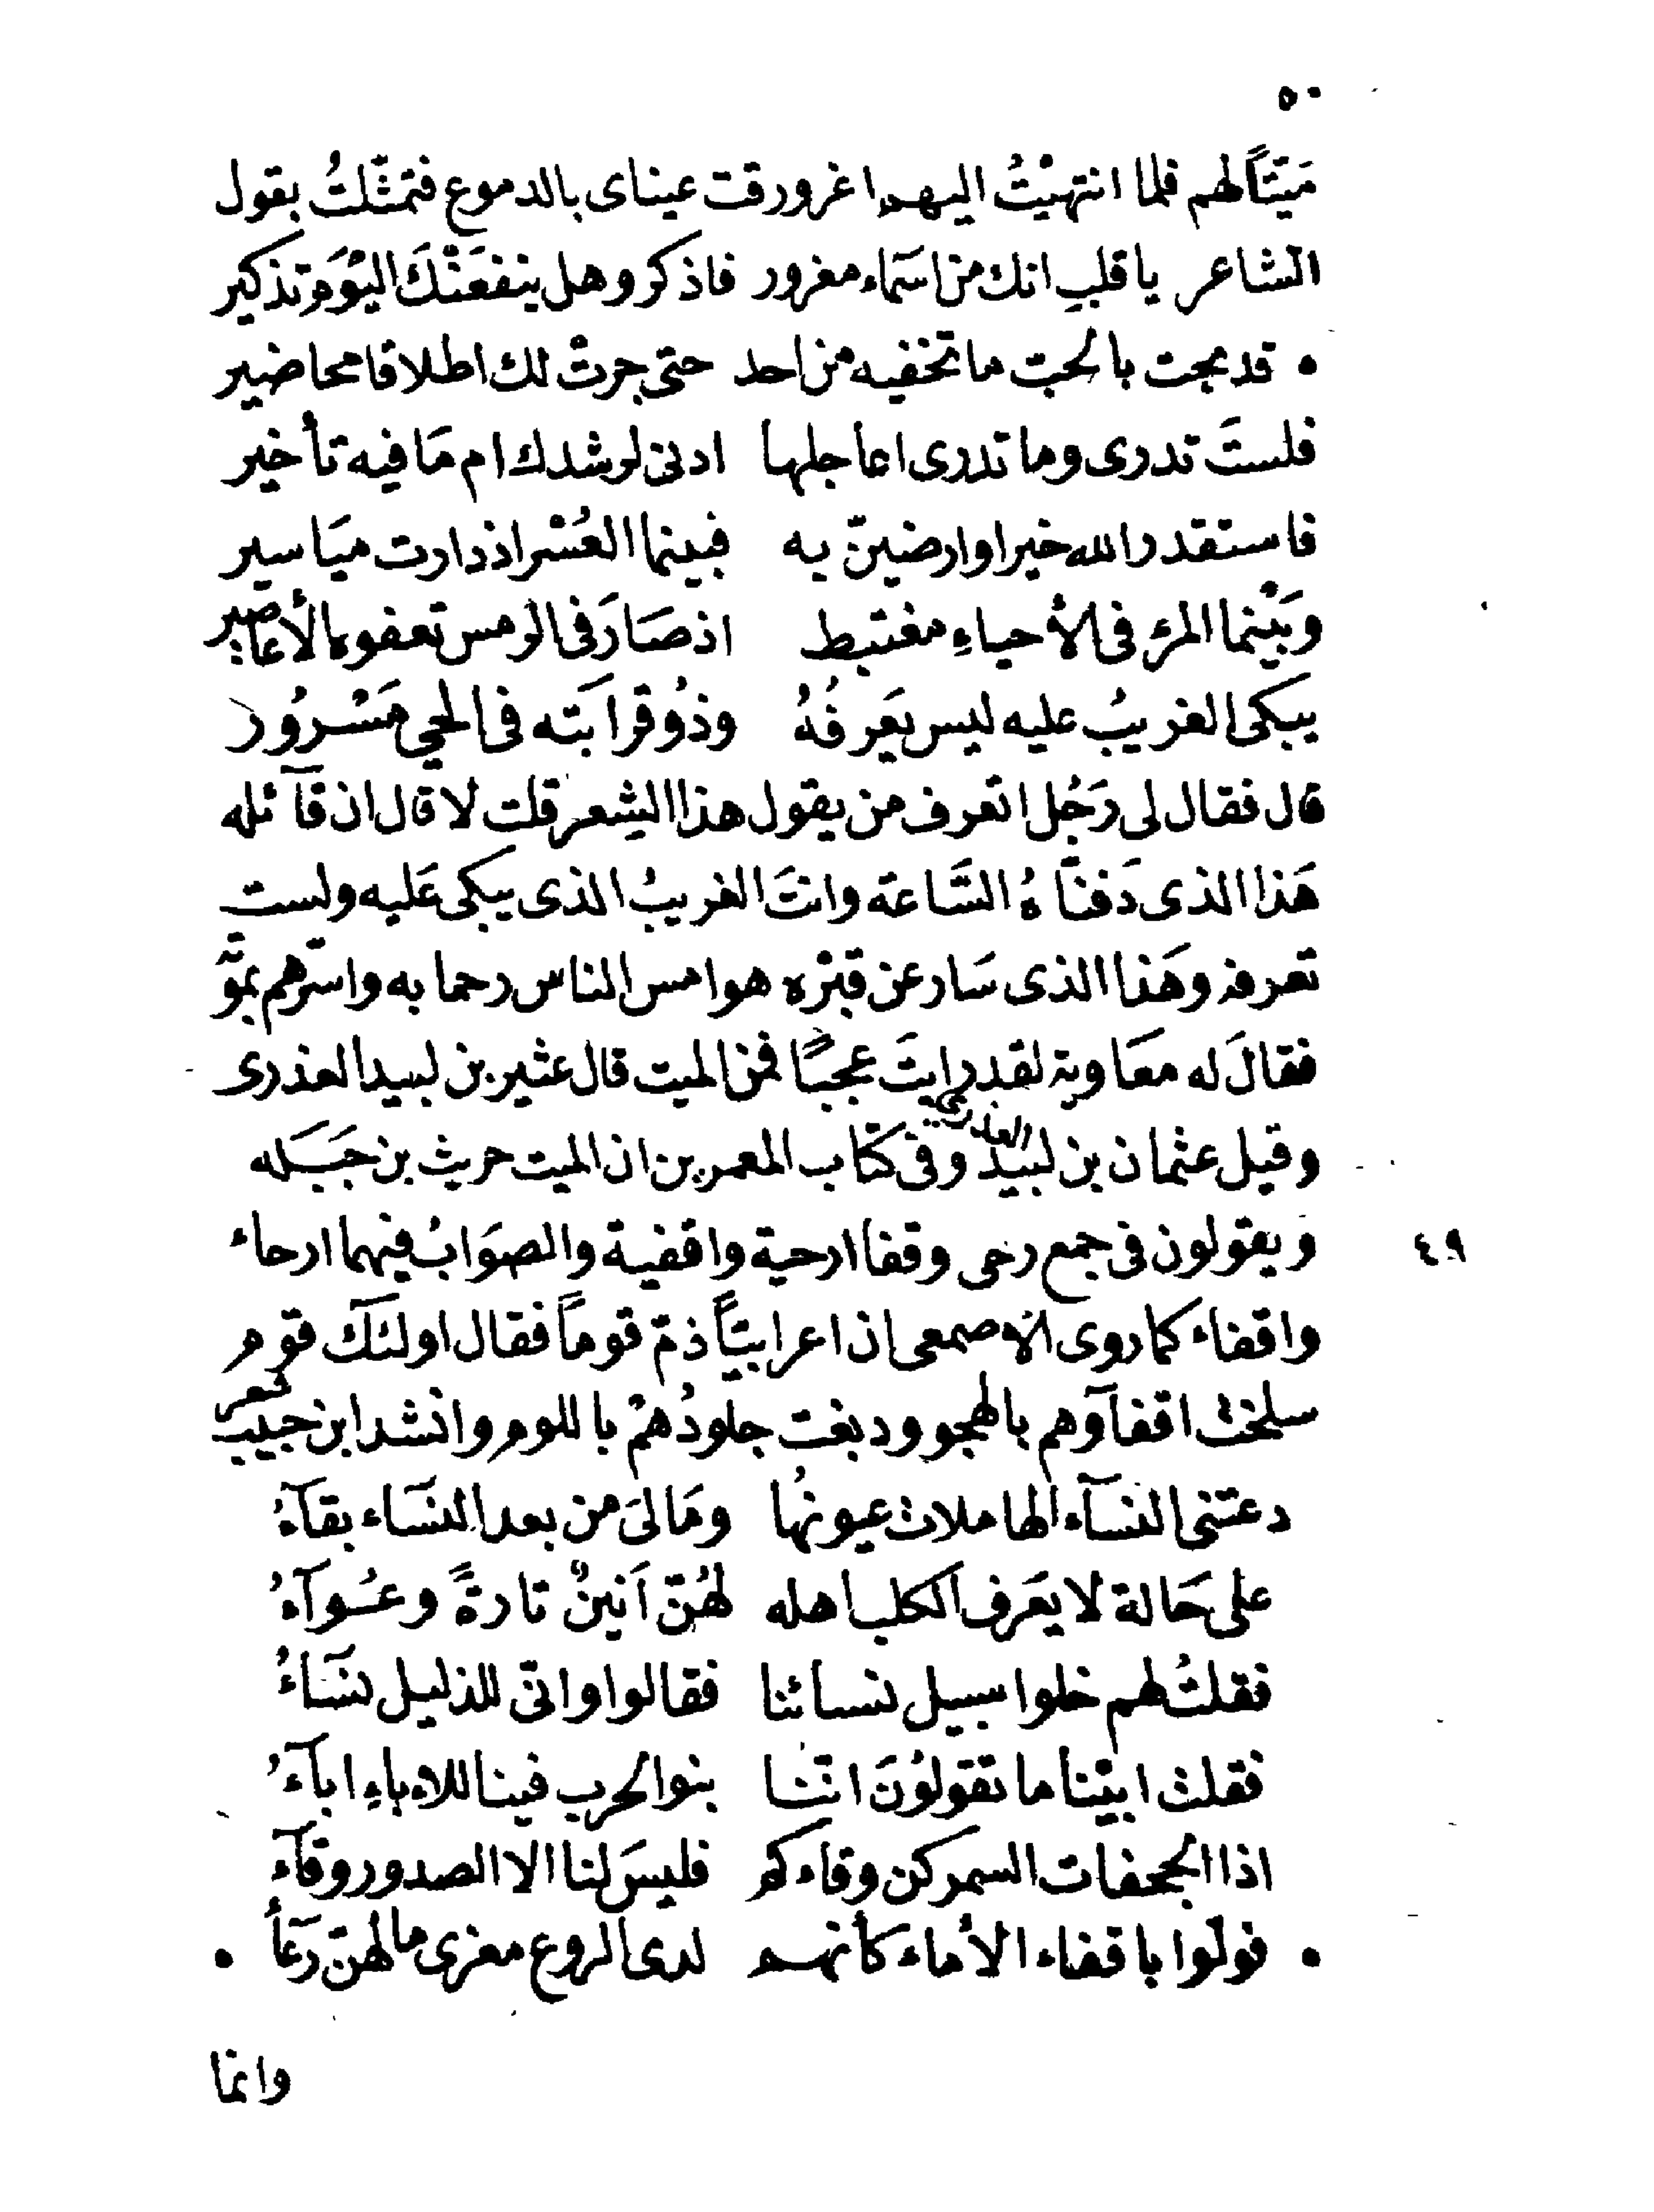 ٥٠
مَيّتاً لهم فلما انتهيْتُ اليهم اغرورقت عيناى بالدموع فتمثّلتُ بقول
الشاعر يا قلب انك من اسَماء مغرور فاذكر وهل ينفعَنْكَ اليْوَم تذكير
• قد بحت بالحبّ ما تخفيه من احد حتى جرتْ لك اطلاقا محاضير
فلستَ تدرى وما تدرى اعاجلها ادنى لرشدك ام مَا فيه تأخير
فاستقدر الله خيرا وارضينّ به فبينما العُسْر اذ دارت ميَاسير
وبَيْنما المرء فى الأحياءِ مغتبط اذ صَارَ فى الرمس تعفوه الأعاصير
يبكى الغريبُ عليه ليس يَعرفُهُ وذُو قرابَته فى الحي مَسْرُور
قال فقال لى رَجُل اتعرف من يقول هذا الشعر قلت لا قال ان قآئله
هَذا الذى دَفنّاهُ السَّاعَة وانتَ الغريبُ الذى يبكى عَليه ولست
تعرفه وهَذا الذى سَار عن قبْره هو امس الناس رحما به واسرّهم بموّ
فقالَ له معَاوية لقد رايتَ عجبًا فمن الميت قال عثير بن لبيد العذرى
وقيل عثمان بن لبيد العذرى وفى كتاب المعمرين ان الميت حريث بن جَبَله
٤٩ ويقولون فى جمع رحى وقفا ارحية واقفية والصوَابُ فيهما ارحاء
واقفاء كما روى الأصمعى ان اعرابيّاً ذمّ قوماً فقال اولئكَ قوم
سلخت اقفآوهم بالهجو ودبغت جلودُهمْ باللوم وانشد ابن حبيب شعر
دعتنى النسَآء الهاملات عيونهُا ومَا لىَ من بعد النسَاء بقآءُ
على حَالة لا يعَرف الكلب اهله لهُنّ اَنينٌ تارةً وعُوآءُ
فقلتُ لهم خلوا سبيل نسائنا فقالوا وانّى للذليل نسَاءُ
فقلت ابيْنا ما تقولوُنَ اننّا بنو الحرب فينا للاباءِ ابآءُ
اذا الجحفات السمر كن وقاءكم فليسَ لنا الا الصدور وقآء
• فولّوا باقفاء الأماء كأنهم لدى الروع معزى ما لهنّ رَعآء •
وانما